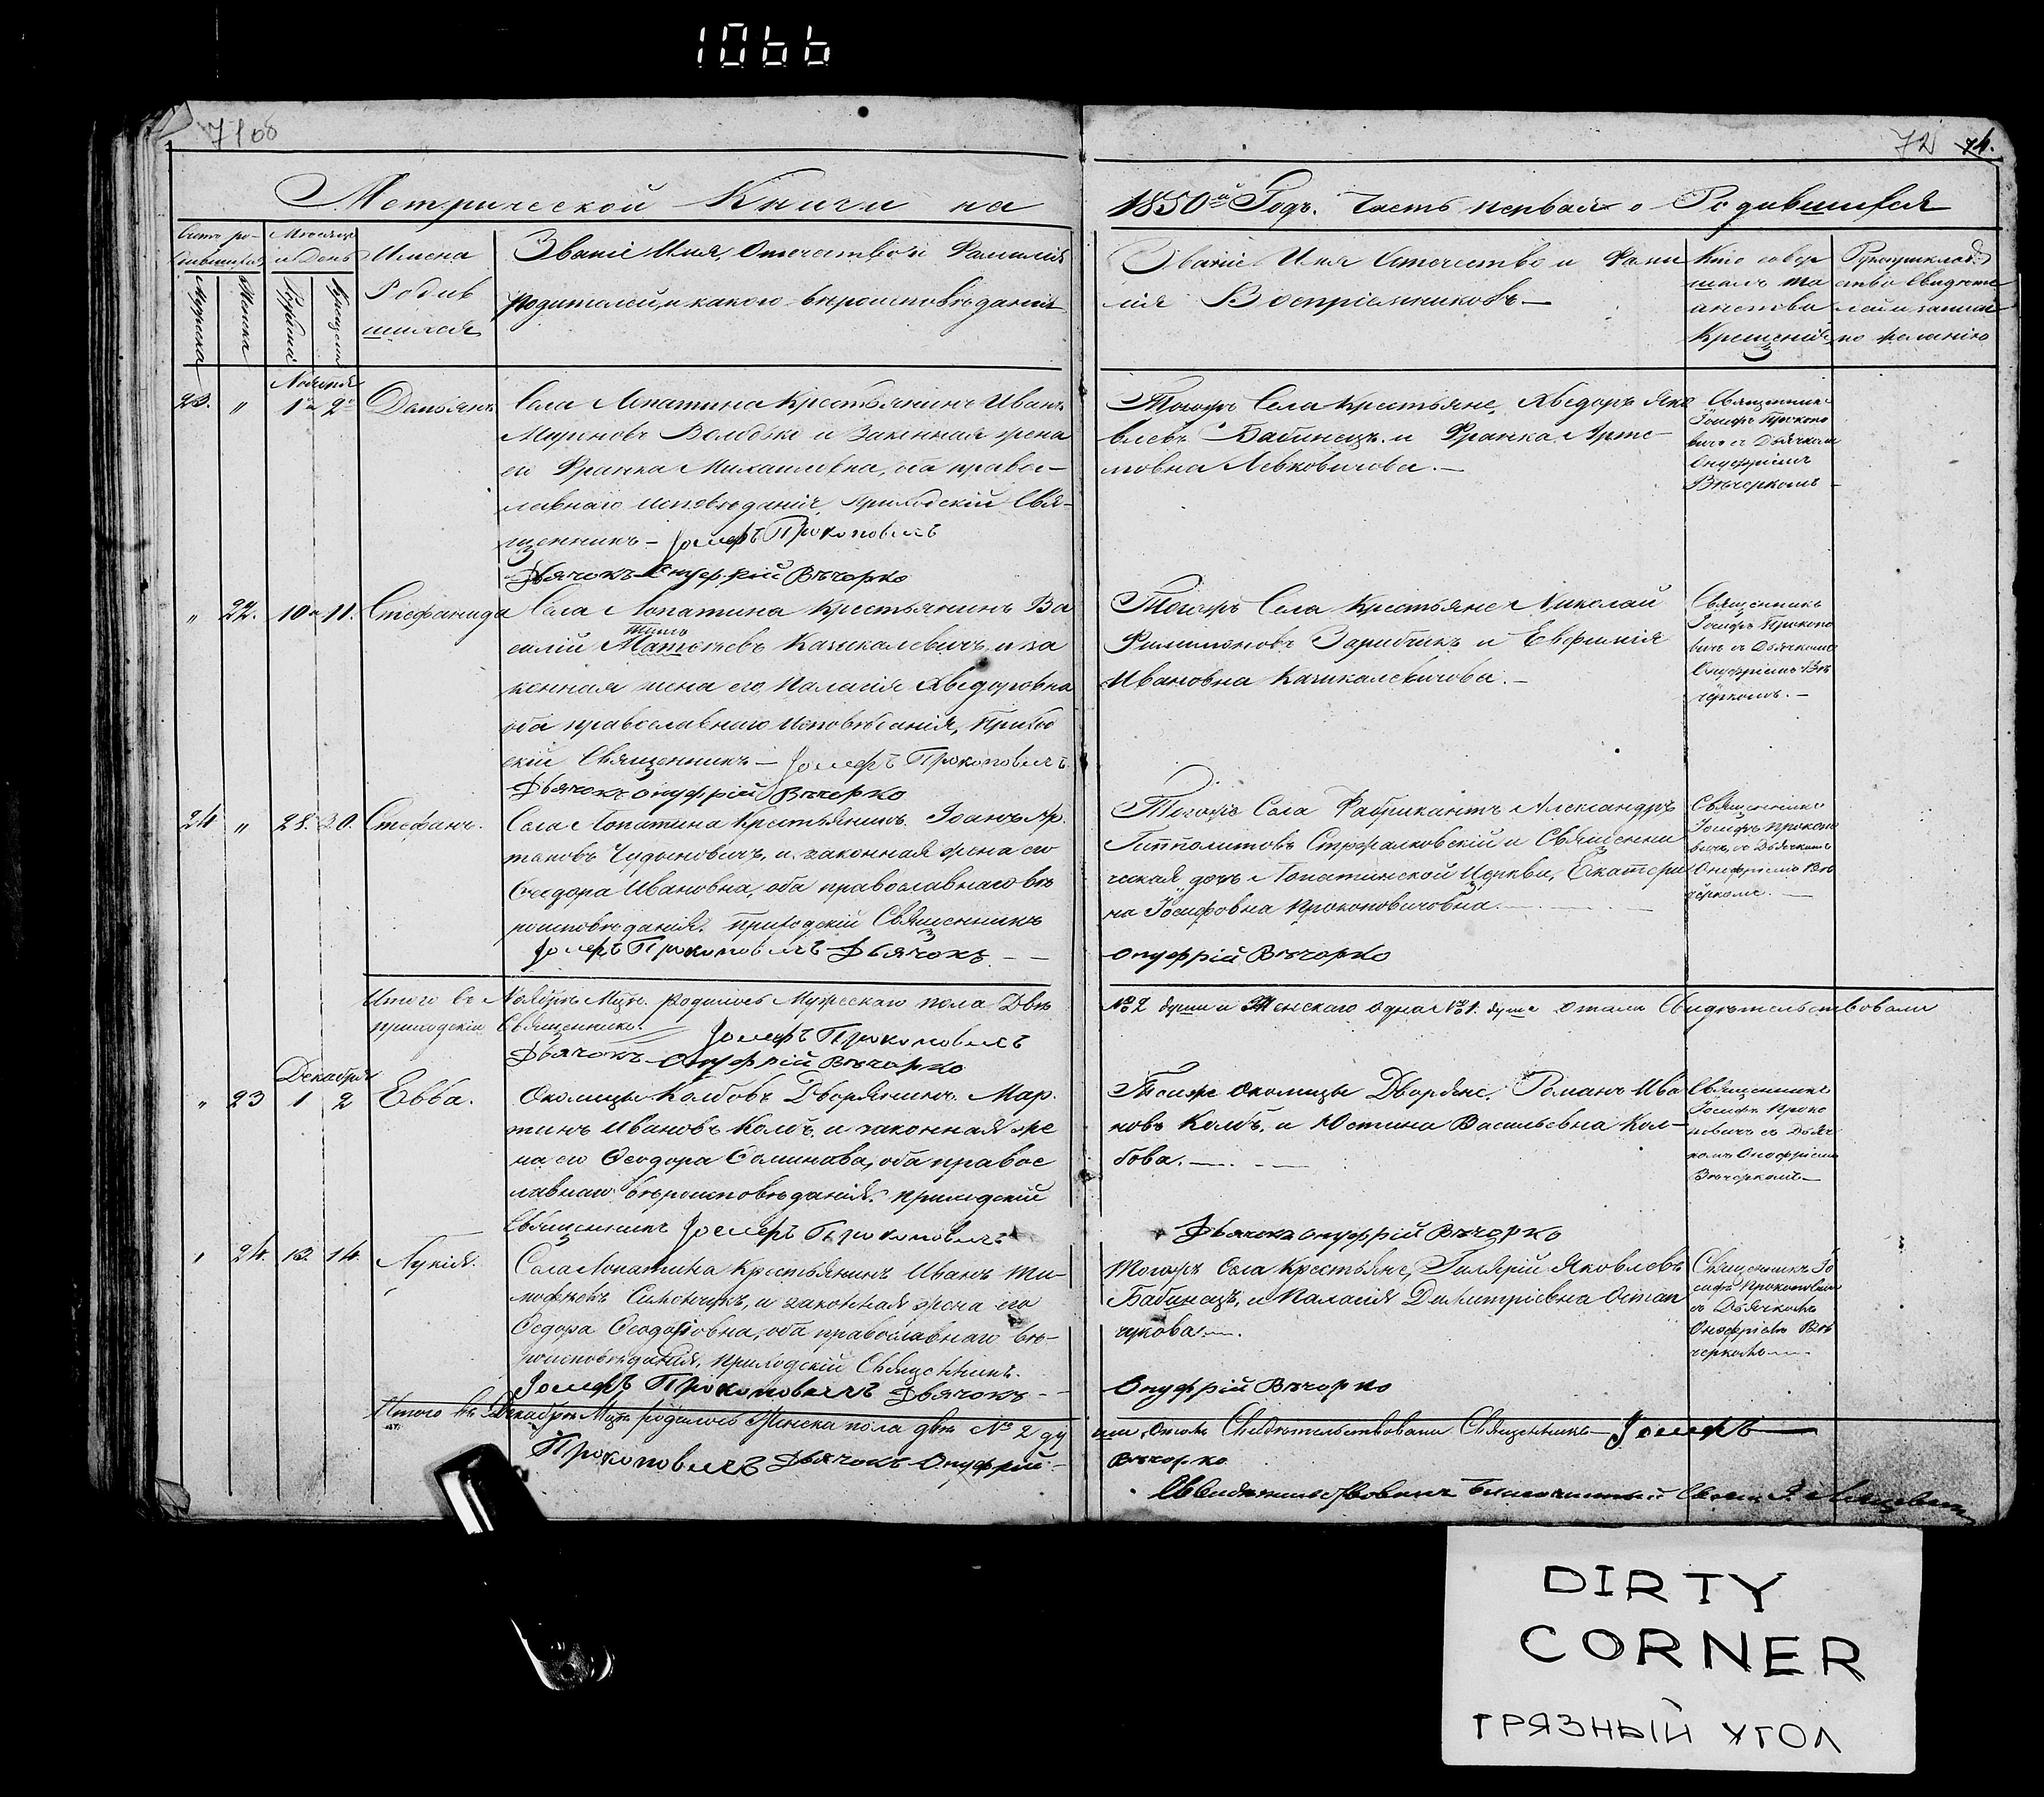 1066
7108
72 74.
Метрической Книги на
1850й Годъ. Часть первая о Родившихся
Счетъ ро-
дившихся
Мужеска
Женска
Месяцъ
и День
Рожденiя
Крещенiя
Имена
Родив
шихся
Званiе Имя, Отечество и Фамилiя
родителей, и какого вѣроисповѣданiя
Званiе Имя Отечество и Фами
лiя Воспрiемниковъ —
Кто совер
шалъ та
инство
Крещенiя
Рукоприклад
ство свидѣте
лей о записи
по желанiю
Ноября
23. " 1 2 Демьянъ
Села Лопатина Крестьянинъ Иванъ
Мироновъ Волобко и Законная жена
его Франка Михайловна, оба правос-
лавнаго исповѣданiя, Приходскiй Свя-
щенникъ — Iосифъ Прокоповичъ
Дьячокъ Онуфрiй Вѣчорко
Тогожъ Села Крестьяне, Ѳведоръ Яко
влевъ Бабинецъ и Франка Арте-
мовна Левковичова. —
Священникъ
Iосифъ Прокопо
вичъ съ Дьячкомъ
Онуфрiемъ
Вѣчоркомъ
" 22. 10 11. Стефанида
Села Лопатина Крестьянинъ Ва
силiй Матѳѣевъ Качкалевичъ и за
конная жена его Паласiя Ѳведоровна
оба православнаго исповѣданiя, Приход
скiй Священникъ — Iосифъ Прокоповичъ
Дьячокъ Онуфрiй Вѣчорко
Тогожъ Села Крестьяне Николай
Филимоновъ Зарибчикъ и Евфимiя
Ивановна Качкалевичова. —
Священникъ
Iосифъ Прокопо
вичъ съ Дьячкомъ
Онуфрiемъ Вѣ
чоркомъ. —
24 " 28. 30. Стефанъ.
Села Лопатина Крестьянинъ Iоанъ Ар.
тановъ Чудиновичъ, и законная жена его
Ѳеодора Ивановна, оба православнаго вѣ
роисповѣданiя. приходскiй Священникъ
Iосифъ Прокоповичъ Дьячокъ — —
Тогожъ Села Фабрикантъ Александръ
Гипполитовъ Стржалковскiй и Священни
ческая дочь Лопатинской Церкви, Екатери
на Iосифовна Прокоповичовна.
Онуфрiй Вѣчорко
Священникъ
Iосифъ Прокопо
вичъ, съ Дьячкомъ
Онофрiемъ Вѣ
чоркомъ. —
Итого въ Ноябрѣ Мцѣ. родилось Мужескаго пола Двѣ
№ 2 души и Женскаго одна № 1. душа о томъ Свидѣтельствовали
приходскiй Священникъ. Iосифъ Прокоповичъ
Дьячокъ — Онуфрiй Вѣчорко
Декабря
" 23 1 2 Евва.
Околицы Колбовъ Дворянинъ Мар.
тинъ Ивановъ Колбъ, и законная же
на его Ѳеодора Семинова, оба правос
лавнаго вѣроисповѣданiя. приходскiй
Священникъ Iосифъ Прокоповичъ
Тоижъ околицы Дворяне, Романъ Ива
новъ Колбъ, и Юстина Васильевна Кол-
бова. —
Дьячокъ Онуфрiй Вѣчорко
Священникъ
Iосифъ Проко
повичъ съ Дьяч
комъ Онофрiемъ
Вѣчоркомъ —
" 24. 13. 14. Лукiя.
Села Лопатина Крестьянинъ Иванъ Ти-
мофѣевъ Симончукъ, и законная жена его
Ѳедора Ѳеодоровна, оба православнаго вѣ-
роисповѣданiя, приходскiй Священникъ.
Iосифъ Прокоповичъ Дьячокъ —
Тогожъ Села Крестьяне, Гилярiй Яковлевъ
Бабинецъ, и Паласiя Димитрiевна Остап
чукова.
Онуфрiй Вѣчорко
Священникъ Iо
сифъ Прокоповичъ
съ Дьячкомъ
Онофрiемъ Вѣ
чоркомъ
Итого въ Декабрѣ Мцѣ родилось Женска пола двѣ № 2 ду
ши, о томъ Свидѣтельствовали Священникъ — Iосифъ
Прокоповичъ Дьячокъ Онуфрiй —
Вѣчорко
Свидѣтельствовалъ Благочинный Свящ.
DIRTY
CORNER
ГРЯЗНЫЙ УГОЛ